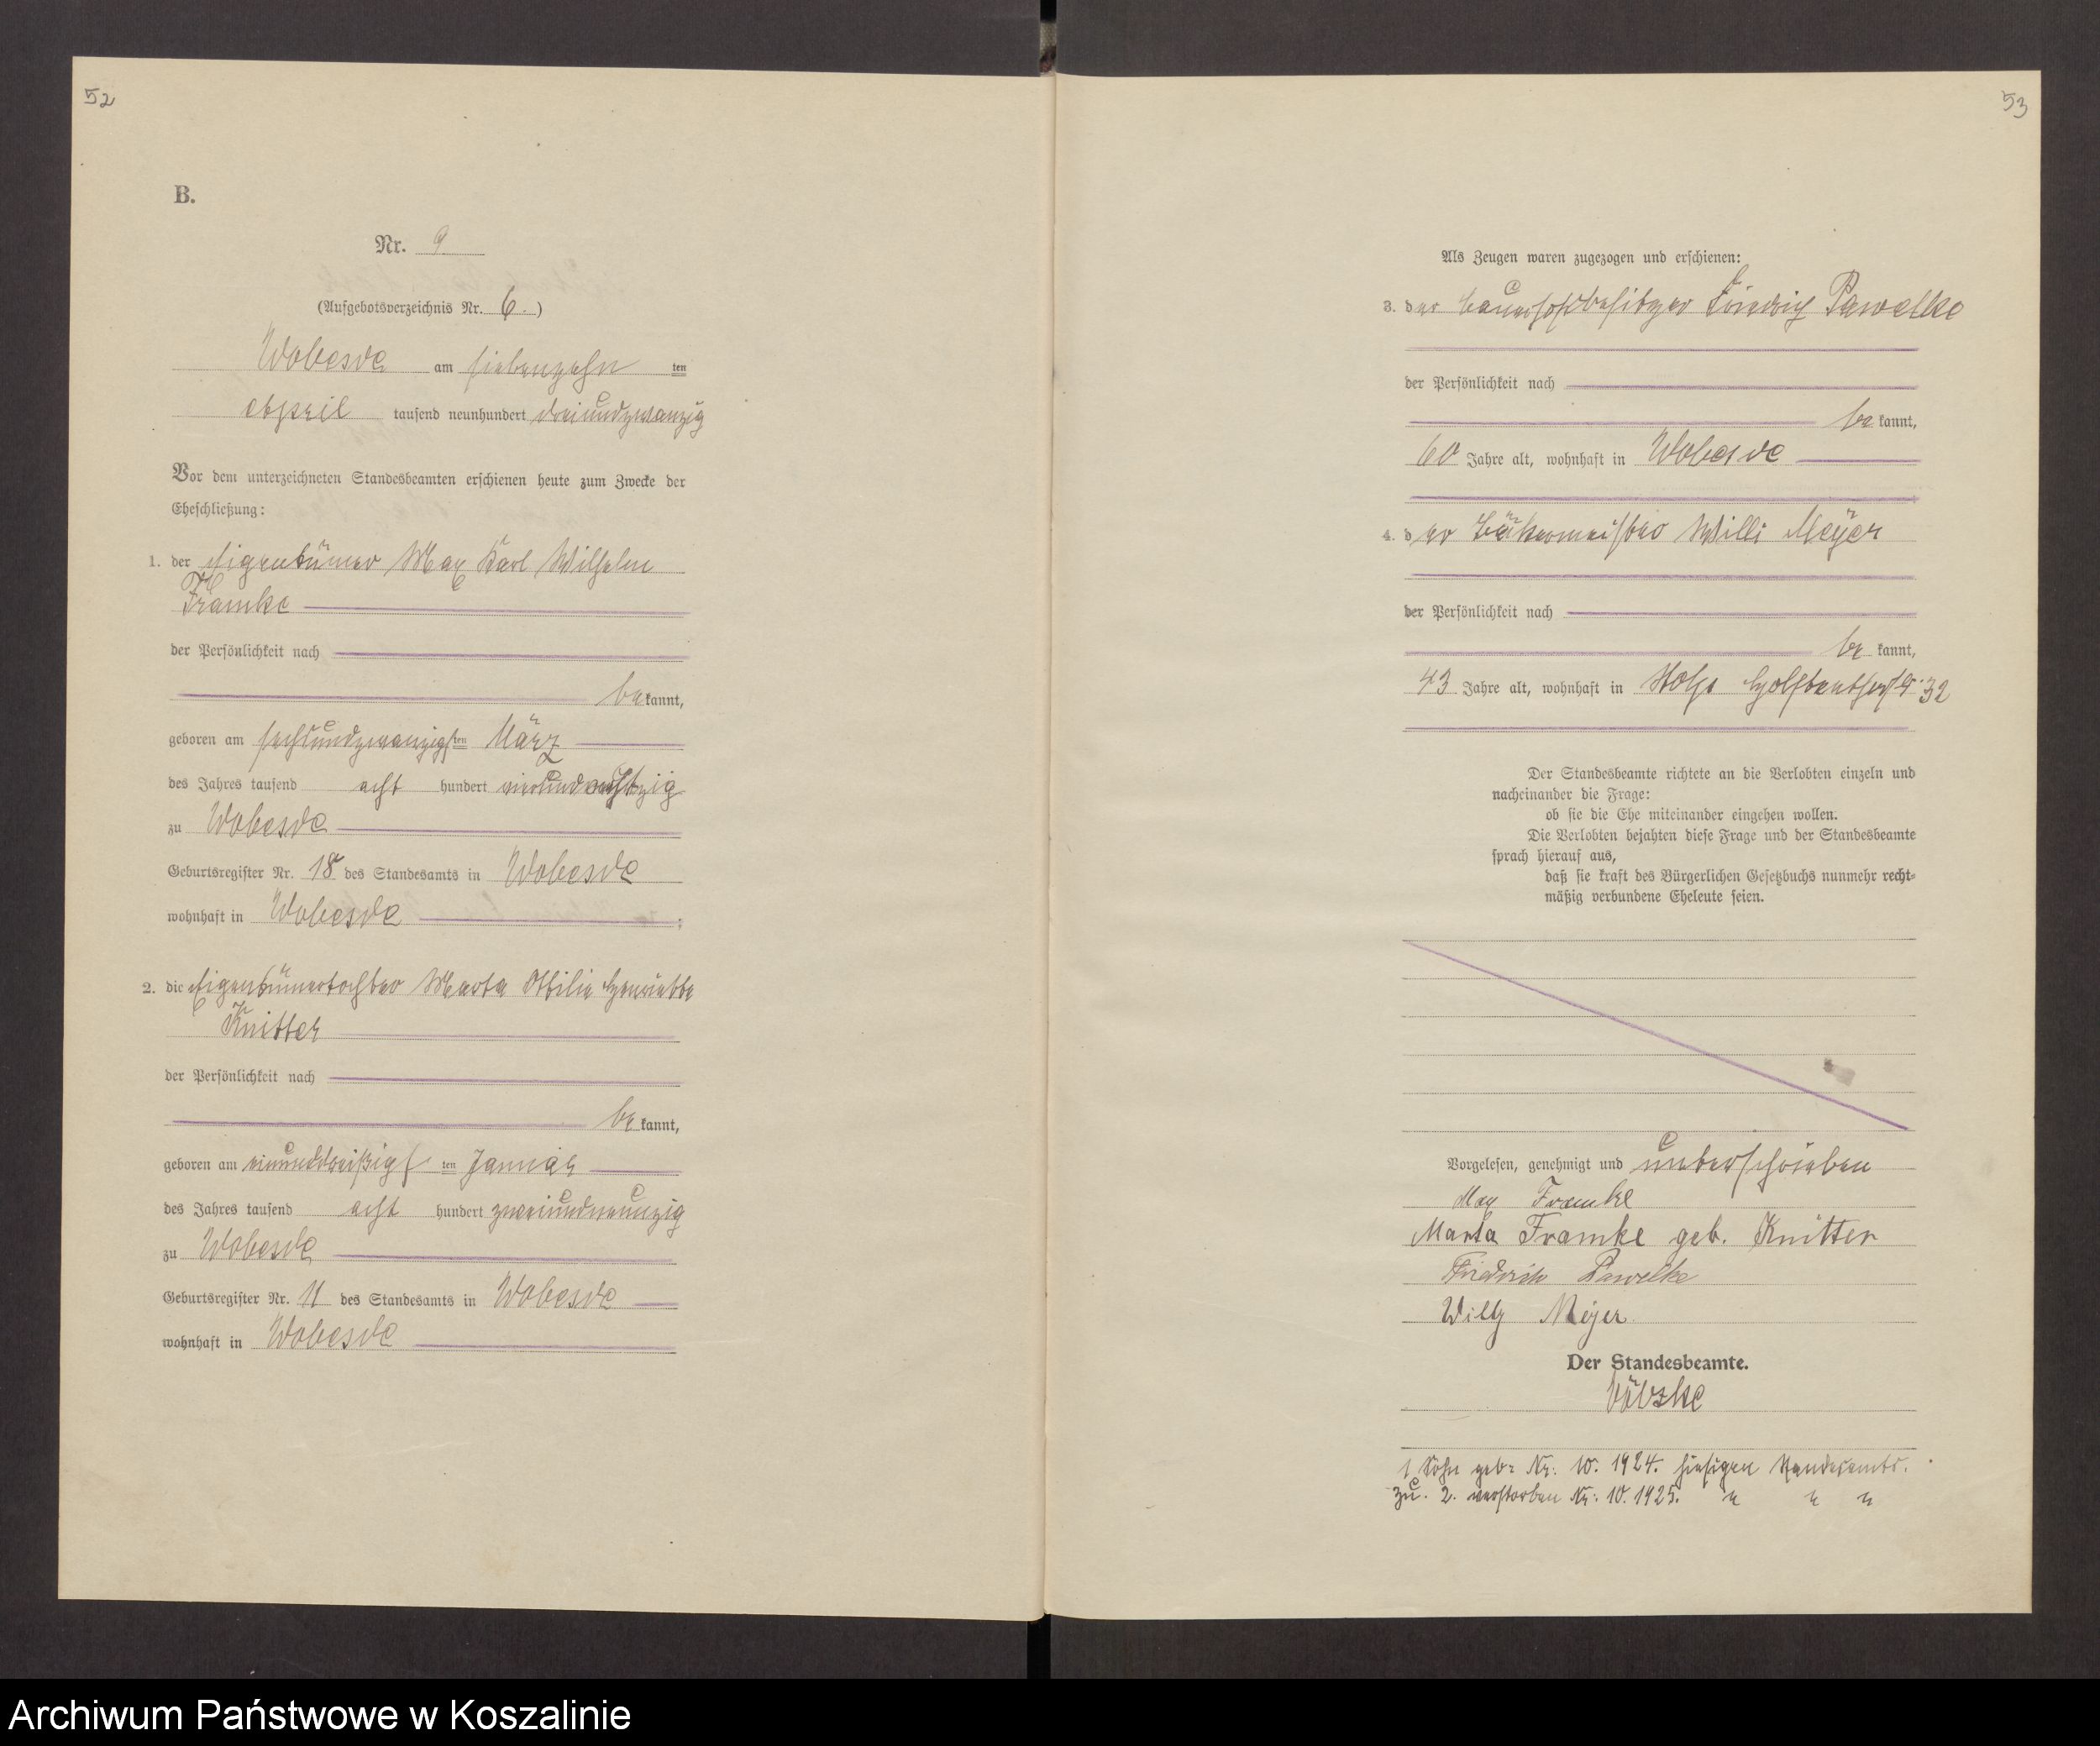 52
B.
Nr. 9
(Aufgebotsverzeichnis Nr. 6.)
Wobesde am siebenzehn ten
April tausend neunhundert dreiundzwanzig
Vor dem unterzeichneten Standesbeamten erschienen heute zum Zwecke der
Eheschließung:
1. der Eigentümer Max Karl Wilhelm
Framke
der Persönlichkeit nach
be kannt,
geboren am sechsundzwanzigsten März
des Jahres tausend acht hundert vierundachtzig
zu Wobesde
Geburtsregister Nr. 18 des Standesamts in Wobesde
wohnhaft in Wobesde ;
2. die Eigentümertochter Marta Ottilie Henriette
Knitter
der Persönlichkeit nach
be kannt,
geboren am einunddreißigsten Januar
des Jahres tausend acht hundert zweiundneunzig
zu Wobesde
Geburtsregister Nr. 11 des Standesamts in Wobesde
wohnhaft in Wobesde
53
Als Zeugen waren zugezogen und erschienen:
3. der Bauerhofbesitzer Friedrich Pawelke
der Persönlichkeit nach
be kannt,
60 Jahre alt, wohnhaft in Wobesde
4. der Bäckermeister Willi Meyer
der Persönlichkeit nach
be kannt,
43 Jahre alt, wohnhaft in Stolp 32
Der Standesbeamte richtete an die Verlobten einzeln und
nacheinander die Frage:
ob sie die Ehe miteinander eingehen wollen.
Die Verlobten bejahten diese Frage und der Standesbeamte
sprach hierauf aus,
daß sie kraft des Bürgerlichen Gesetzbuchs nunmehr recht-
mäßig verbundene Eheleute seien.
Vorgelesen, genehmigt und unterschrieben
Max Framke
Marta Framke geb. Knitter
Friedrich Pawelke
Willy Meyer
Der Standesbeamte.
1 Sohn geb: Nr: 10. 1924. hiesigen Standesamts.
Zu. 2. verstorben Nr: 10. 1925. " " "
Archiwum Państwowe w Koszalinie